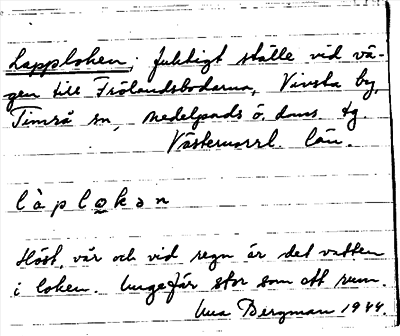 Lapploken, fuktigt ställe vid vä-
gen till Frölandsbodarna, Vivsta by,
Timrå sn, Medelpads ö. doms tg.
Västernorrl. län.
l à p l o k ə n
Höst, vår och vid regn är det vatten
i loken. Ungefär stor som ett rum.
Una Bergman 1944.